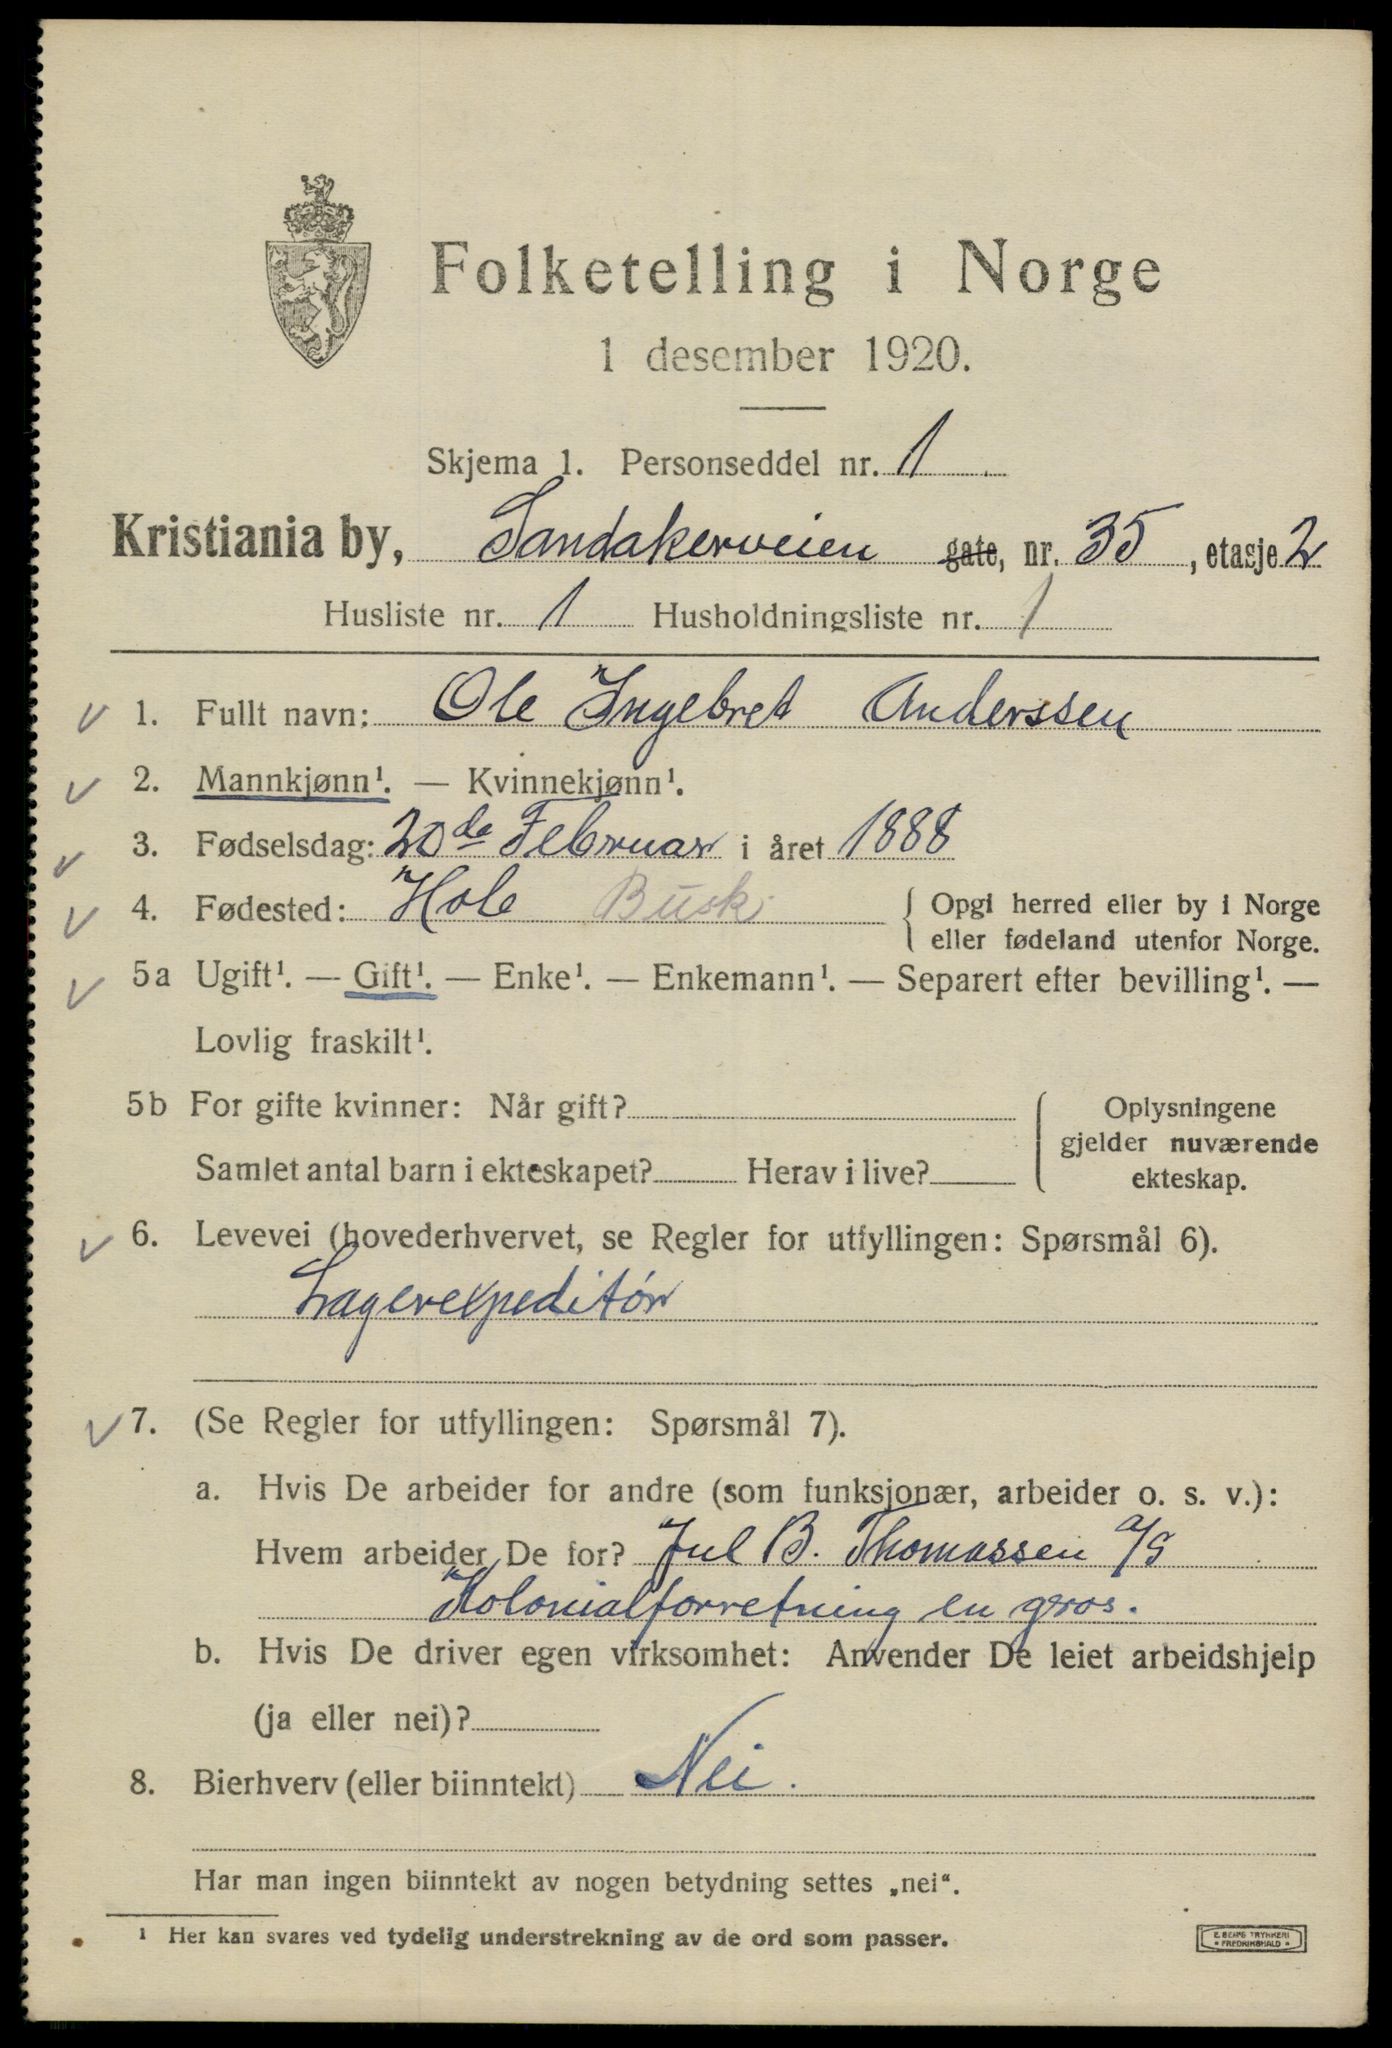 Folketelling i Norge
1 desember 1920.
Skjema 1. Personseddel nr. 1
Kristiania by, Sandakerveien gate, nr. 35, etasje 2
Husliste nr. 1 Husholdningsliste nr. 1
1. Fullt navn: Ole Ingebret Anderssen
2. Mannkjønn¹. — Kvinnekjønn¹.
3. Fødselsdag: 20de Februar i året 1888
4. Fødested: Hole Busk. { Opgi herred eller by i Norge
eller fødeland utenfor Norge.
5a Ugift¹. — Gift¹. — Enke¹. — Enkemann¹. — Separert efter bevilling¹. —
Lovlig fraskilt¹.
5b For gifte kvinner: Når gift? { Oplysningene
gjelder nuværende
Samlet antal barn i ekteskapet? Herav i live?
ekteskap.
6. Levevei (hovederhvervet, se Regler for utfyllingen: Spørsmål 6).
Lagerexpeditór
7. (Se Regler for utfyllingen: Spørsmål 7).
a. Hvis De arbeider for andre (som funksjonær, arbeider o. s. v.):
Hvem arbeider De for? Jul B. Thomassen a/s
Kolonialforretning en gros.
b. Hvis De driver egen virksomhet: Anvender De leiet arbeidshjelp
(ja eller nei)?
8. Bierhverv (eller biinntekt) Nei.
Har man ingen biinntekt av nogen betydning settes „nei“.
¹ Her kan svares ved tydelig understrekning av de ord som passer.
E. BERGS TRYKKERI
• FREDRIKSHALD •